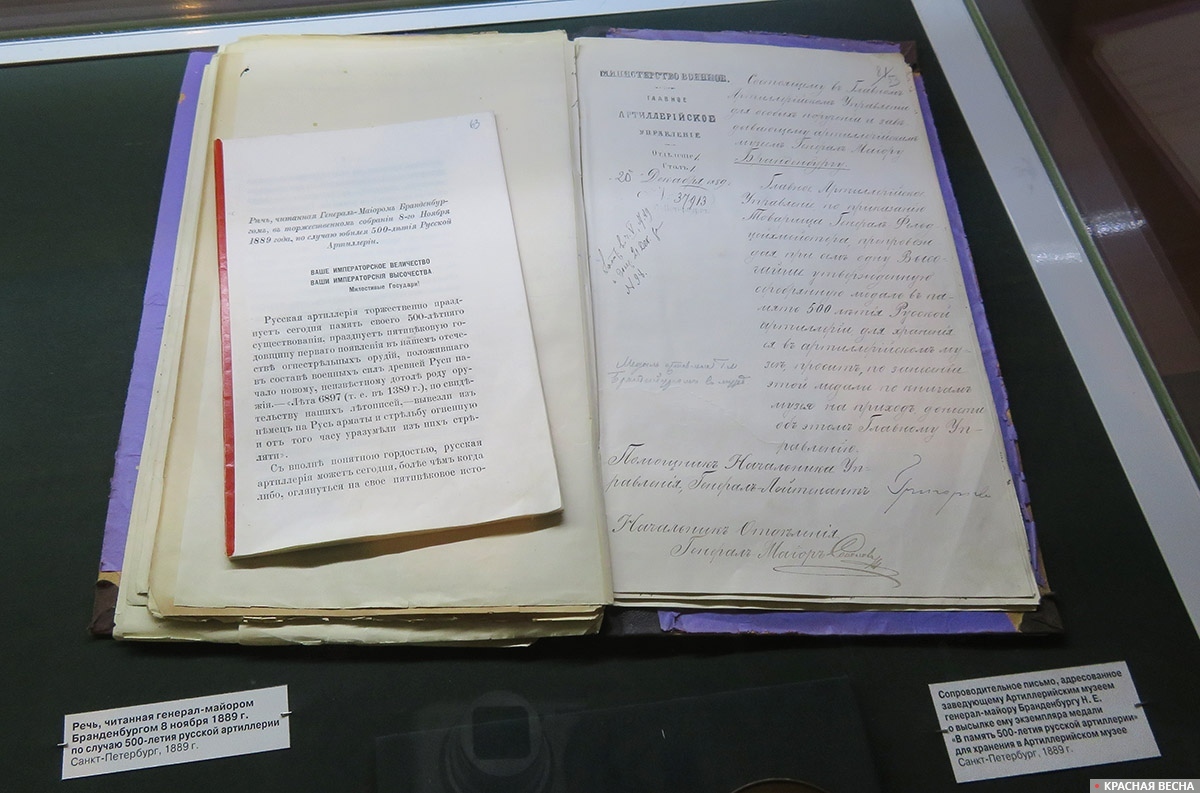 63
Рѣчь, читанная Генералъ-Маіоромъ Бранденбур-
гомъ, въ торжественномъ собраніи 8-го Ноября
1889 года, по случаю юбилея 500-лѣтія Русской
Артиллеріи.
ВАШЕ ИМПЕРАТОРСКОЕ ВЕЛИЧЕСТВО
ВАШИ ИМПЕРАТОРСКІЯ ВЫСОЧЕСТВА
Милостивые Государи!
Русская артиллерія торжественно празд-
нуетъ сегодня память своего 500-лѣтняго
существованія, празднуетъ пятивѣковую го-
довщину перваго появленія въ нашемъ отече-
ствѣ огнестрѣльныхъ орудій, положившаго
въ составѣ военныхъ силъ древней Руси на-
чало новому, неизвѣстному дотолѣ роду ору-
жія.—«Лѣта 6897 (т. е. въ 1389 г.), по свидѣ-
тельству нашихъ лѣтописей,—вывезли изъ
нѣмецъ на Русь арматы и стрѣльбу огненную
и отъ того часу уразумѣли изъ нихъ стрѣ-
ляти».
Съ вполнѣ понятною гордостью, русская
артиллерія можетъ сегодня, болѣе чѣмъ когда
либо, оглянуться на свое пятивѣковое исто-
МИНИСТЕРСТВО ВОЕННОЕ.
ГЛАВНОЕ
АРТИЛЛЕРІЙСКОЕ
УПРАВЛЕНІЕ
Отдѣленіе
Столъ
20 Декабря 1889
37913
Состоящему въ Главномъ
Артиллерійскомъ Управленіи
для особыхъ порученій и заве-
дывающему артиллерійскимъ
музеемъ Генералъ Маіору
Бранденбургу.
Главное Артиллерійское
Управленіе по приказанію
Товарища Генералъ Фельд-
цейхмейстера, препровож-
дая при семъ одну Высо-
чайше утвержденную
серебрянную медаль въ па-
мять 500 лѣтія Русской
артиллеріи для хранені-
я въ артиллерійскомъ му-
зеѣ, проситъ, по занесеніи
этой медали по книгамъ
музея на приходъ донести
объ этомъ Главному Уп-
равленію.
Помощникъ Начальника Уп-
равленія, Генералъ-Лейтенантъ
Начальникъ Отдѣленія
Генералъ Маіоръ
Речь, читанная генерал-майором
Бранденбургом 8 ноября 1889 г.
по случаю 500-летия русской артиллерии
Санкт-Петербург, 1889 г.
Сопроводительное письмо, адресованное
заведующему Артиллерийским музеем
генерал-майору Бранденбургу Н. Е.
о высылке ему экземпляра медали
«В память 500-летия русской артиллерии»
для хранения в Артиллерийском музее
Санкт-Петербург, 1889 г.
КРАСНАЯ ВЕСНА